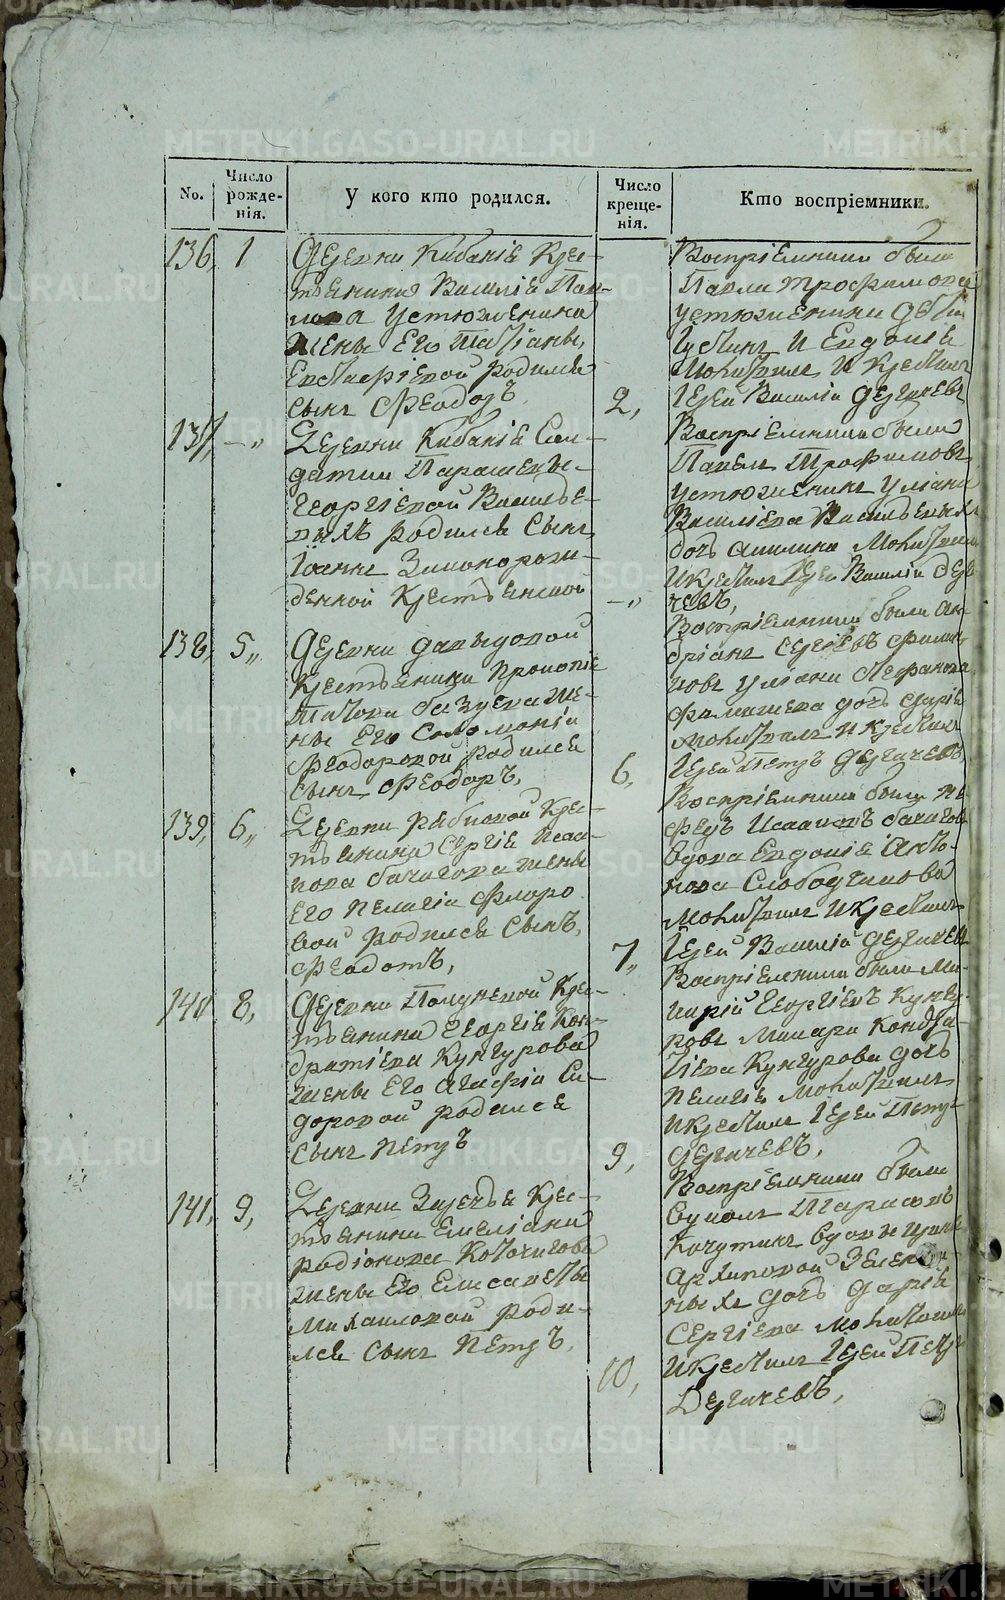 METRIKI.GASO-URAL.RU
No.
Число рожде-нія.
У кого кто родился.
Число креще-нія.
Кто воспріемники.
136, 1
Деревни Кабаніе Крес-
тьянина Василіе Пав-
лова Устюжанина
жены Его Татіаны,
Евстафіевой родился
сынъ Феодоръ
2,
Воспріемники были
Павла Трофимова
устюжанина дѣти
Іустинъ и Евдокіе
молитвилъ и крестилъ
Іерей Василій Дергачевъ
137, — „
Деревни Кабаніе Сол-
датки Парасковьи
Георгіевой Василье-
выхъ родился Сынъ
Іоаннъ Законорож-
денной Крестьянской
— „
Воспріемники были
Павелъ Трофимовъ
устюжанинъ Уліана
Василіева Васильевыхъ
дочь Акилина Молитвилъ
и крестилъ Іерей Василій Дерга
чевъ,
138, 5„
Деревни Давыдовой
крестьянина Прокопіе
жены Его Соломоніи
Феодоровой родился
Сынъ Феодоръ,
6,
Воспріемники были Ан-
дріанъ Сергіевъ
дочь Марія
молитвилъ и крестилъ
Іерей Петръ Дергачевъ
139, 6„
Деревни Рябковой Крес-
тьянина Сергіе Исаа-
кова жены
Его Пелагіи Флоро
вой родился Сынъ,
Феодотъ,
7„
Воспріемники были Не-
федъ Исааковъ
вдова Евдокіе
Слободчикова
молитвилъ и крестилъ
Іерей Василій Дергачевъ
140 8,
Деревни Полуневой Крес-
тьянина Георгіе Кон-
дратіева Кунгурова
жены Его Агафіи Си-
доровой родился
Сынъ Петръ
9,
Воспріемники были Ма-
карій Георгіевъ Кунгу-
ровъ Макара Кондра
тіева Кунгурова дочь
Пелагіе молитвилъ
и крестилъ Іерей Петръ
Дергачевъ,
141, 9,
Деревни Заречье Крес-
тьянина Емеліана
Родіонова Кочигова
жены Его Елисаветы
Михайловой роди-
лся сынъ Петръ,
10,
Воспріемники были
Вукулъ Тарасовъ
Кочутинъ вдовы Ирины
Архиповой Зелен
ныхъ дочь Дарья
Сергіева молитвилъ
и крестилъ Іерей Петръ
Дергачевъ,